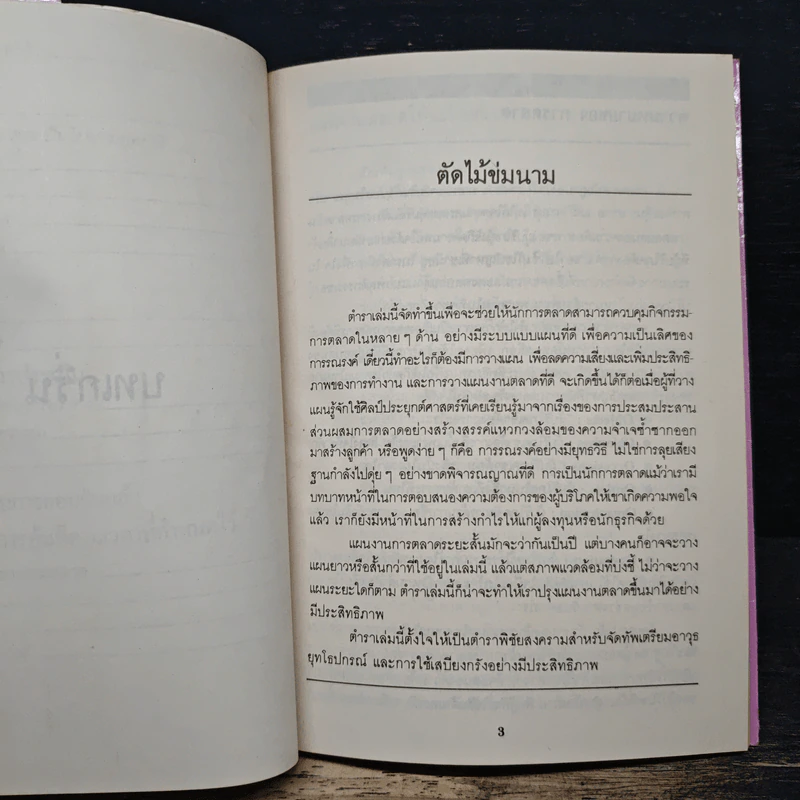 ตัดไม้ข่มนาม
ตำราเล่มนี้จัดทำขึ้นเพื่อจะช่วยให้นักการตลาดสามารถควบคุมกิจกรรม-
การตลาดในหลาย ๆ ด้าน อย่างมีระบบแบบแผนที่ดี เพื่อความเป็นเลิศของ
การรณรงค์ เดี๋ยวนี้ทำอะไรก็ต้องมีการวางแผน เพื่อลดความเสี่ยงและเพิ่มประสิทธิ-
ภาพของการทำงาน และการวางแผนงานตลาดที่ดี จะเกิดขึ้นได้ก็ต่อเมื่อผู้ที่วาง
แผนรู้จักใช้ศิลป์ประยุกต์ศาสตร์ที่เคยเรียนรู้มาจากเรื่องของการประสมประสาน
ส่วนผสมการตลาดอย่างสร้างสรรค์แหวกวงล้อมของความจำเจซ้ำซากออก
มาสร้างลูกค้า หรือพูดง่าย ๆ ก็คือ การรณรงค์อย่างมียุทธวิธี ไม่ใช่การลุยเสียง
ฐานกำลังไปดุ่ย ๆ อย่างขาดพิจารณญาณที่ดี การเป็นนักการตลาดแม้ว่าเรามี
บทบาทหน้าที่ในการตอบสนองความต้องการของผู้บริโภคให้เขาเกิดความพอใจ
แล้ว เราก็ยังมีหน้าที่ในการสร้างกำไรให้แก่ผู้ลงทุนหรือนักธุรกิจด้วย
แผนงานการตลาดระยะสั้นมักจะว่ากันเป็นปี แต่บางคนก็อาจจะวาง
แผนยาวหรือสั้นกว่าที่ใช้อยู่ในเล่มนี้ แล้วแต่สภาพแวดล้อมที่บ่งชี้ ไม่ว่าจะวาง
แผนระยะใดก็ตาม ตำราเล่มนี้ก็น่าจะทำให้เราปรุงแผนงานตลาดขึ้นมาได้อย่าง
มีประสิทธิภาพ
ตำราเล่มนี้ตั้งใจให้เป็นตำราพิชัยสงครามสำหรับจัดทัพเตรียมอาวุธ
ยุทโธปกรณ์ และการใช้เสบียงกรังอย่างมีประสิทธิภาพ
3